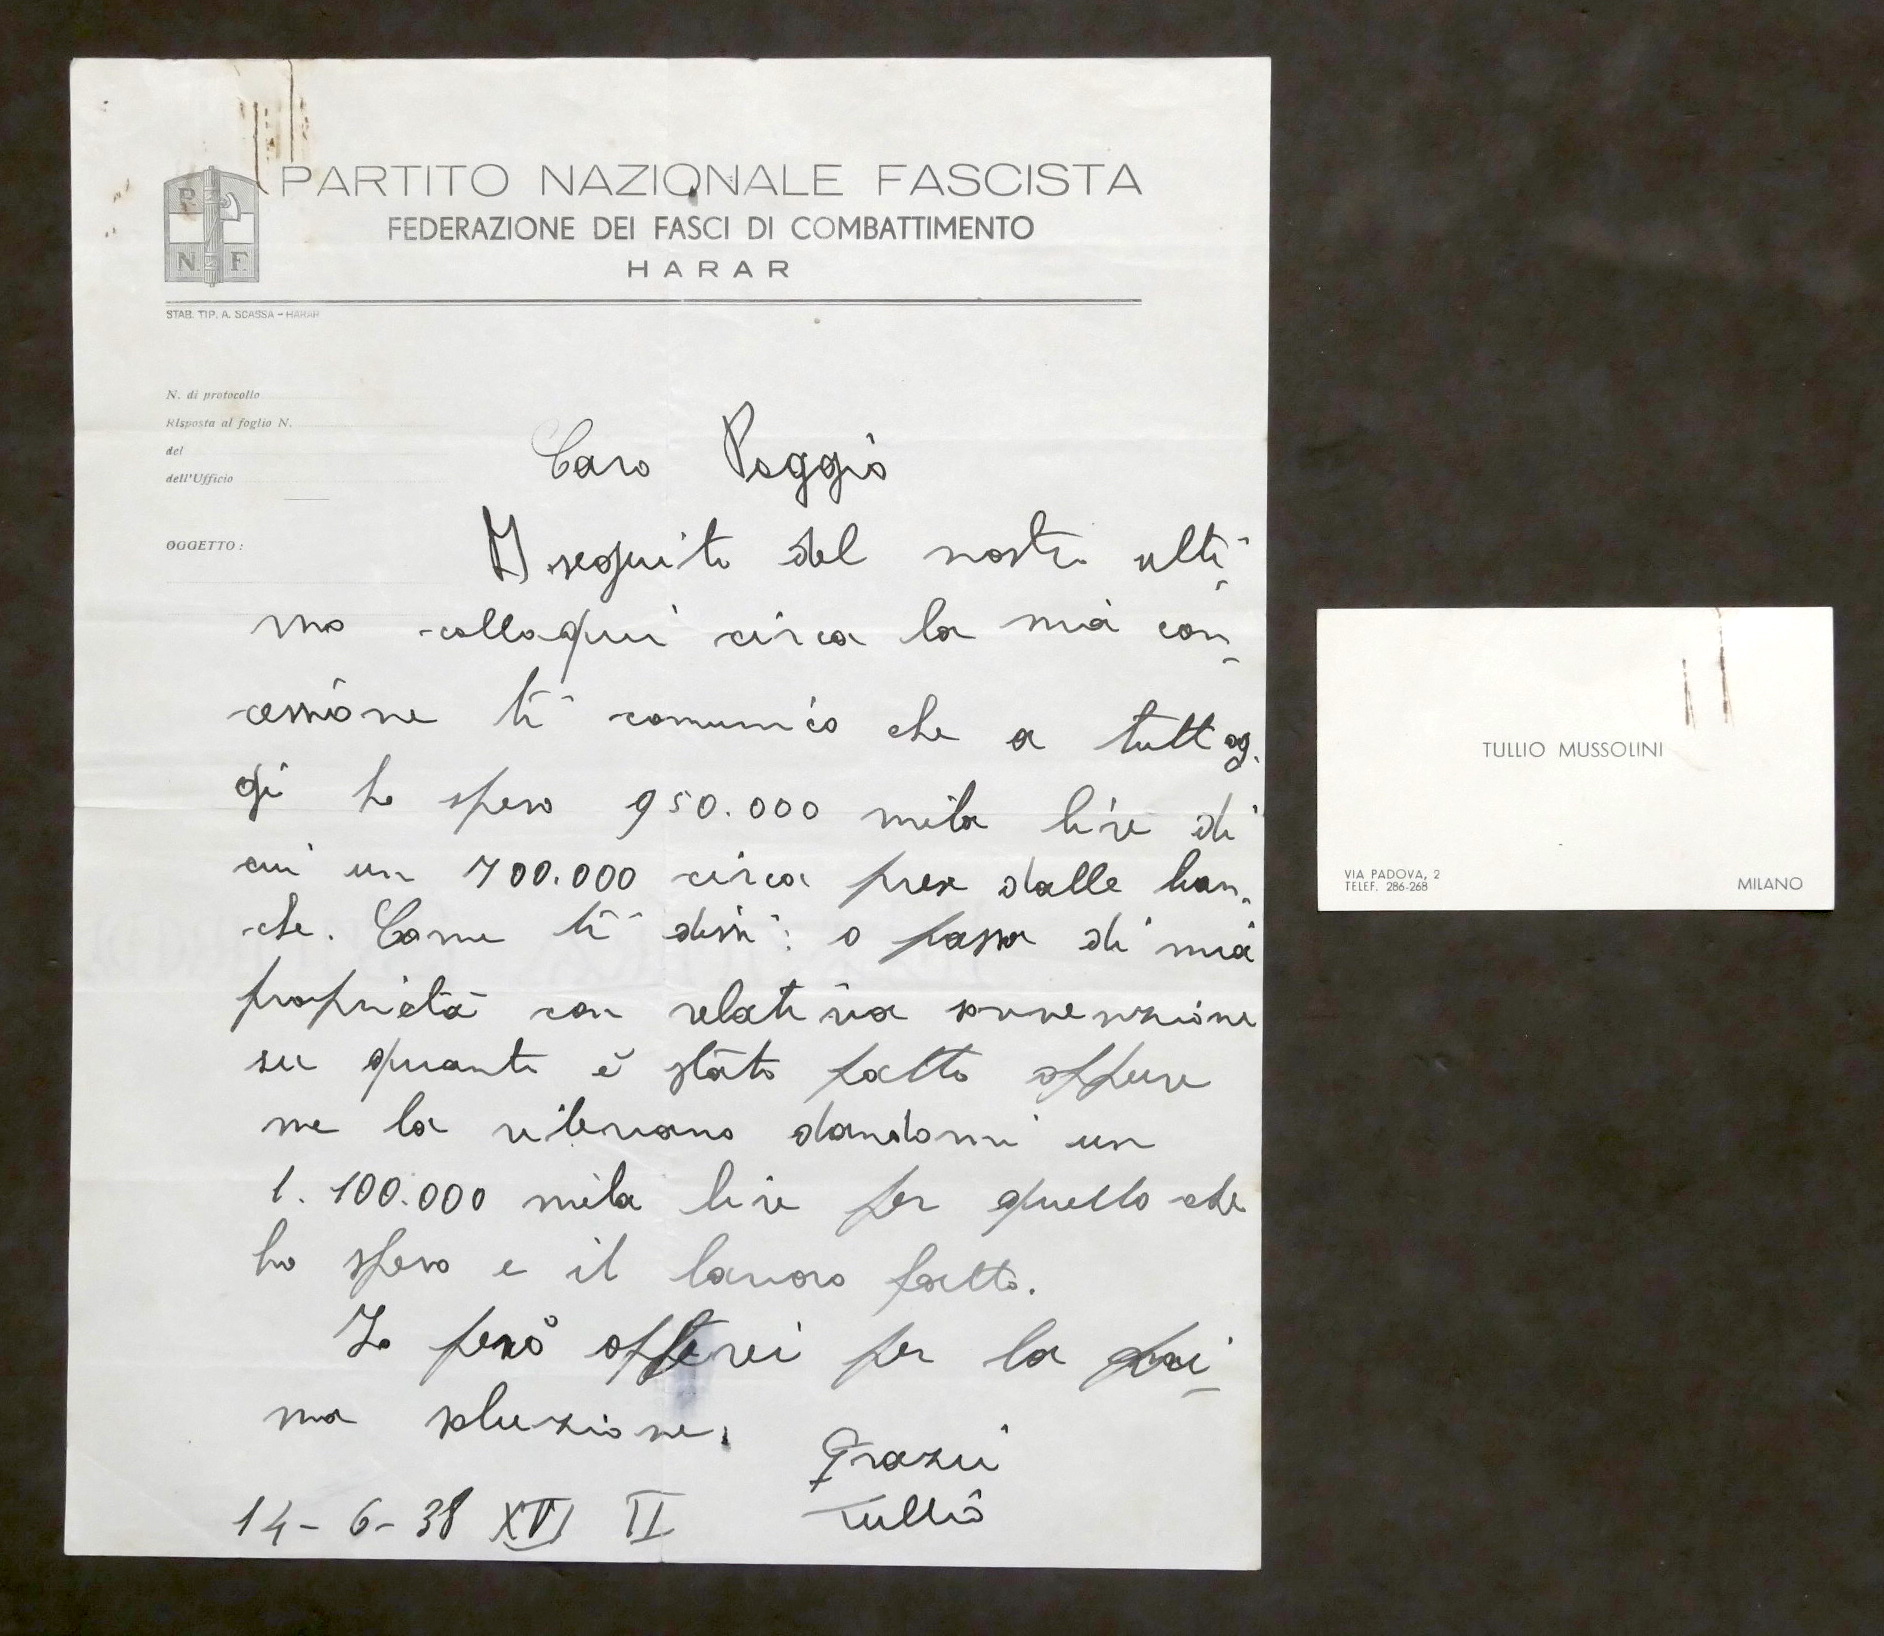 PARTITO NAZIONALE FASCISTA
FEDERAZIONE DEI FASCI DI COMBATTIMENTO
HARAR
P. N. F.
STAB. TIP. A. SCASSA - HARAR
N. di protocollo
Risposta al foglio N.
del
dell'Ufficio
OGGETTO:
Caro Poggio
A seguito del nostro ulti-
mo colloqui circa la mia con-
cessione ti comunico che a tutt'og-
gi ho speso 950.000 mila lire di
cui un 700.000 circa prese dalle ban-
che. Come ti dissi: o passa di mia
proprietà con relativa sovvenzione
su quanto è stato fatto oppure
me la rilevano dandomi un
1.100.000 mila lire per quello che
ho speso e il lavoro fatto.
Io però opterei per la pri-
ma soluzione.
Grazie
Tullio
14-6-38 XVI II
TULLIO MUSSOLINI
VIA PADOVA, 2
TELEF. 286-268
MILANO